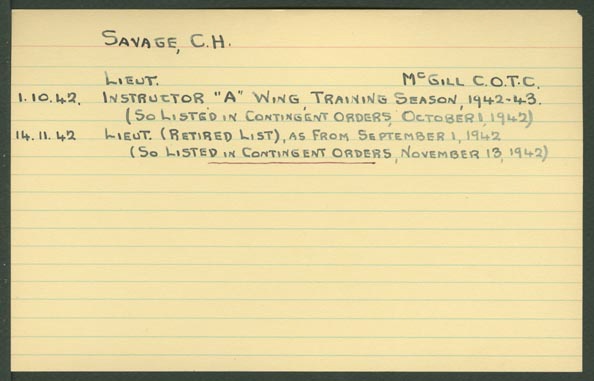 SAVAGE, C.H.
LIEUT. McGILL C.O.T.C.
1.10.42. INSTRUCTOR "A" WING, TRAINING SEASON, 1942-43.
(SO LISTED IN CONTINGENT ORDERS, OCTOBER 1, 1942)
14.11.42 LIEUT. (RETIRED LIST), AS FROM SEPTEMBER 1, 1942
(SO LISTED IN CONTINGENT ORDERS, NOVEMBER 13, 1942)